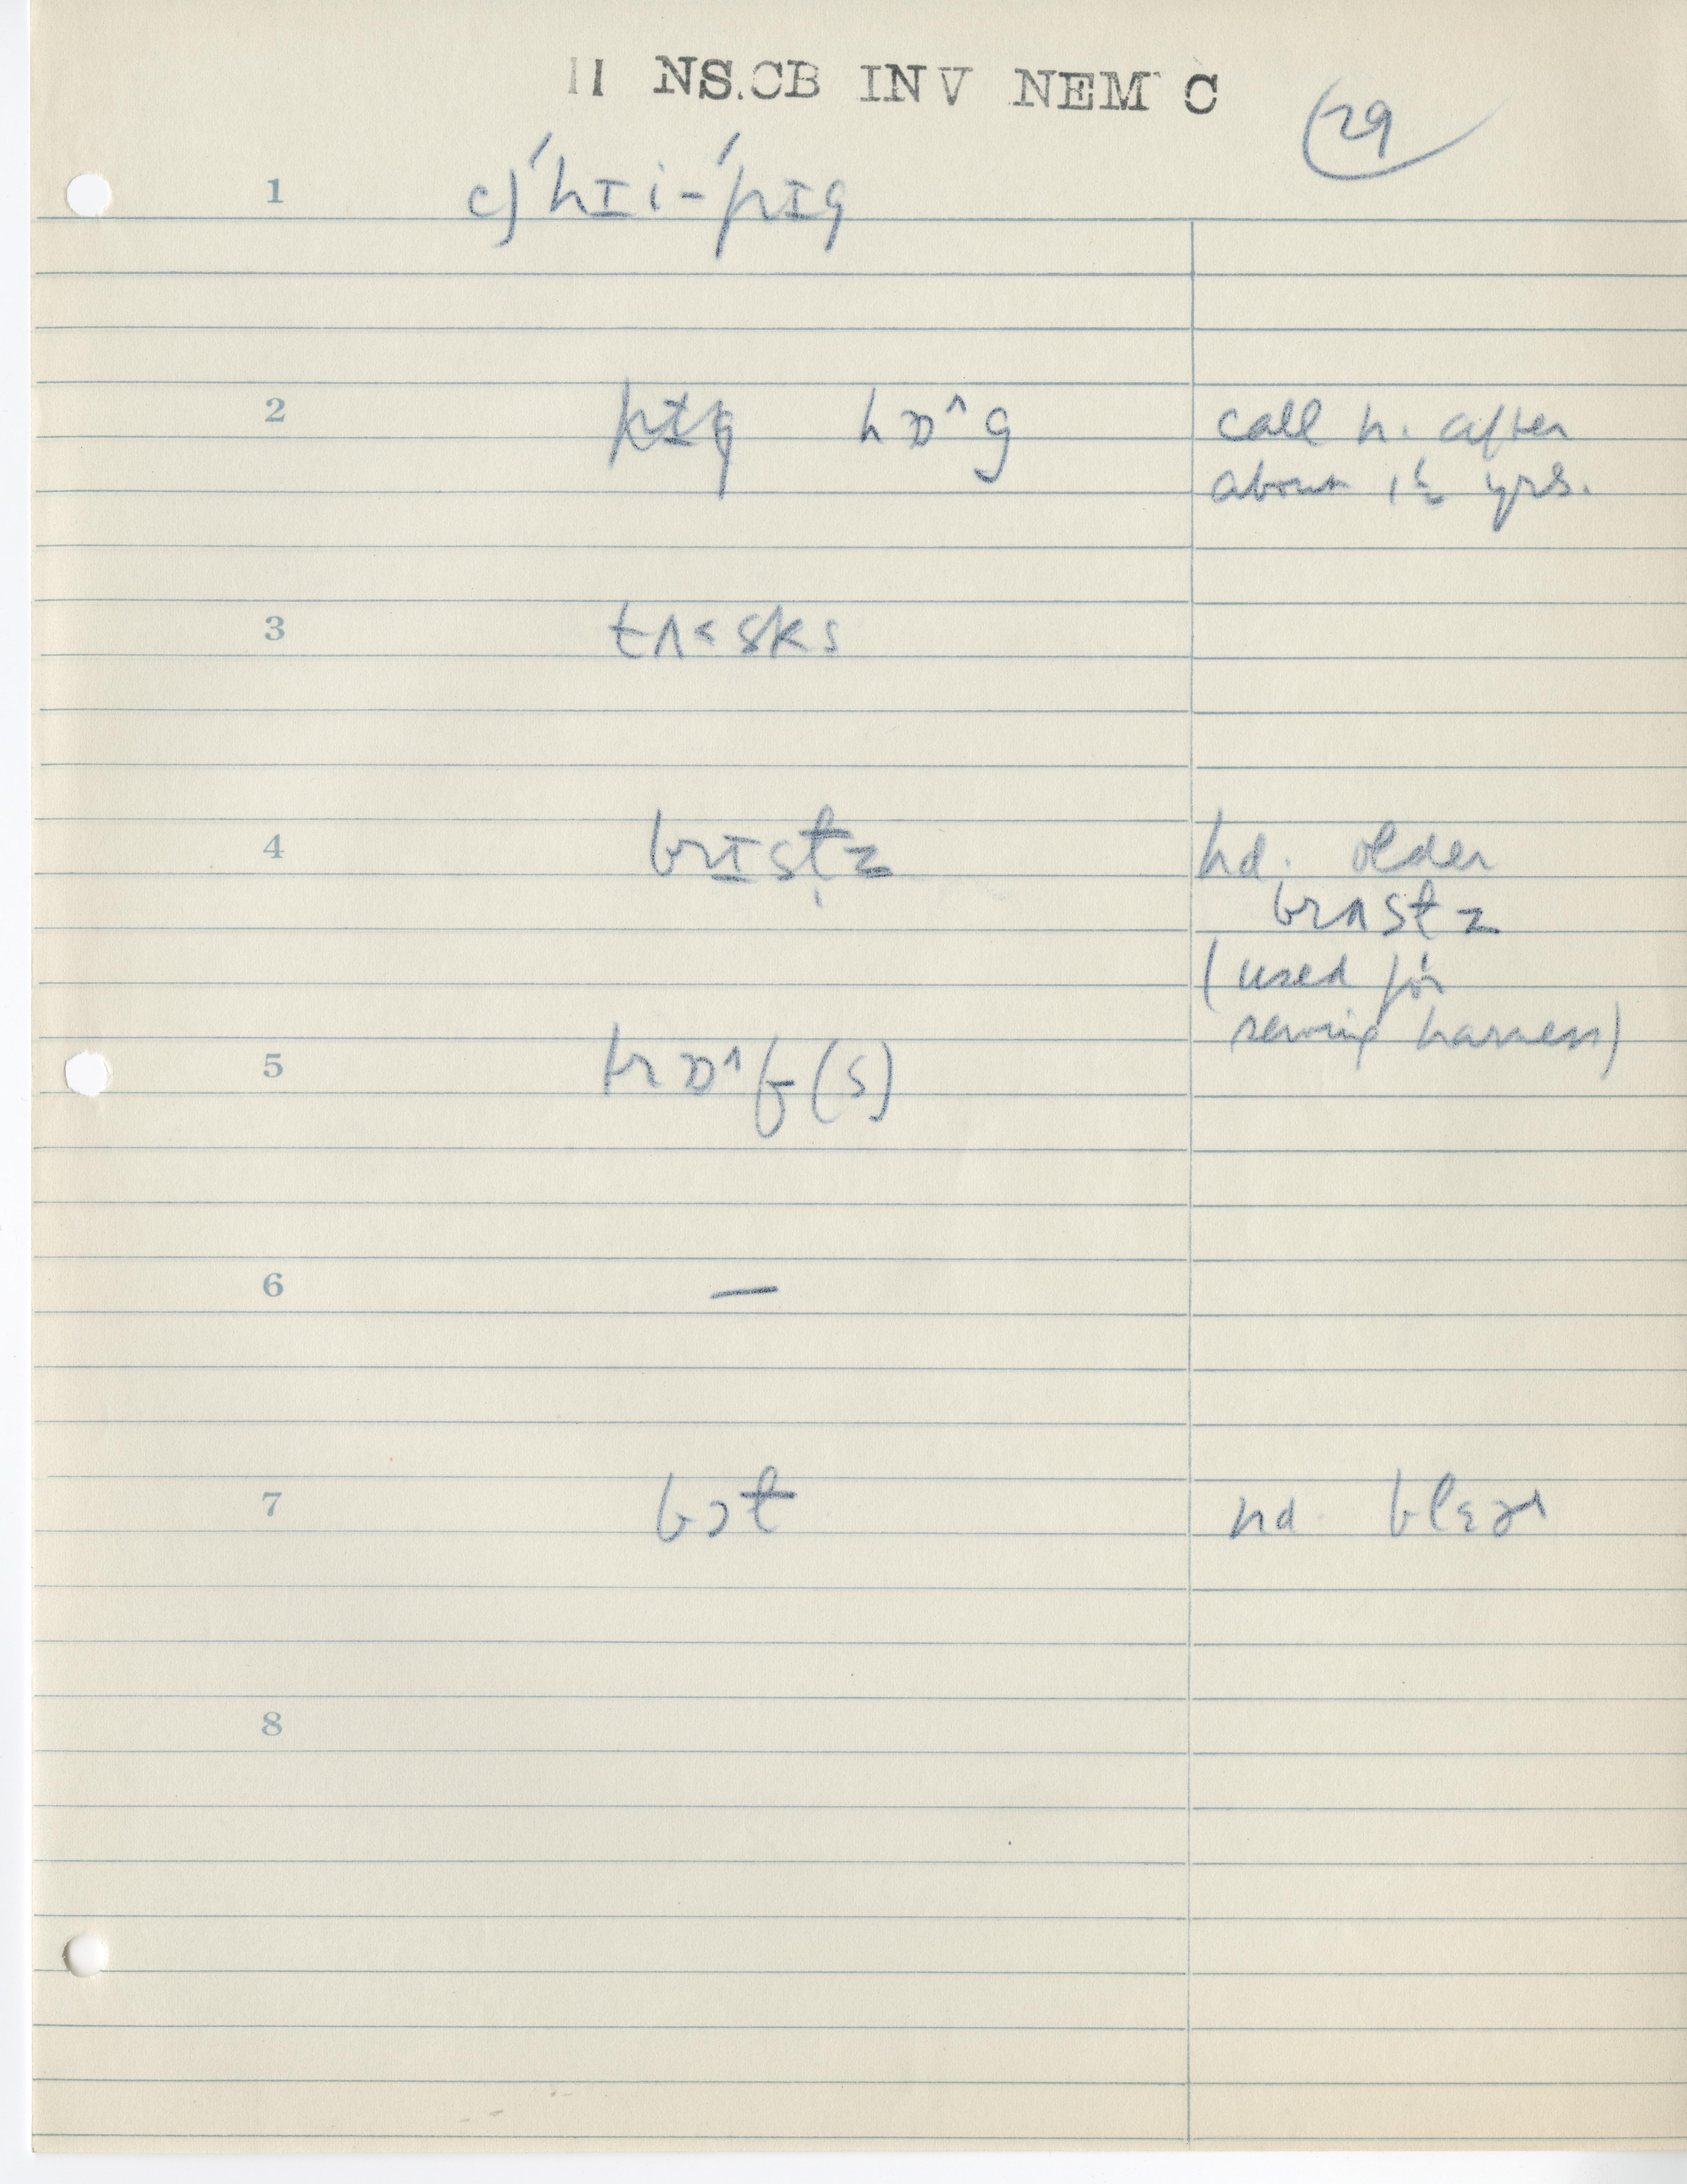 II NS.CB INV NEM C
29
1 ɔ'hɪi-'pɪg
2 hɒ^g call h. after
about 1½ yrs.
3 tʌ<sks
4 brɪstz hd. older
brʌstz
(used for
5 trɒ^f(s) sewing harness)
6 —
7 bɔt hd. blɛɚ
8